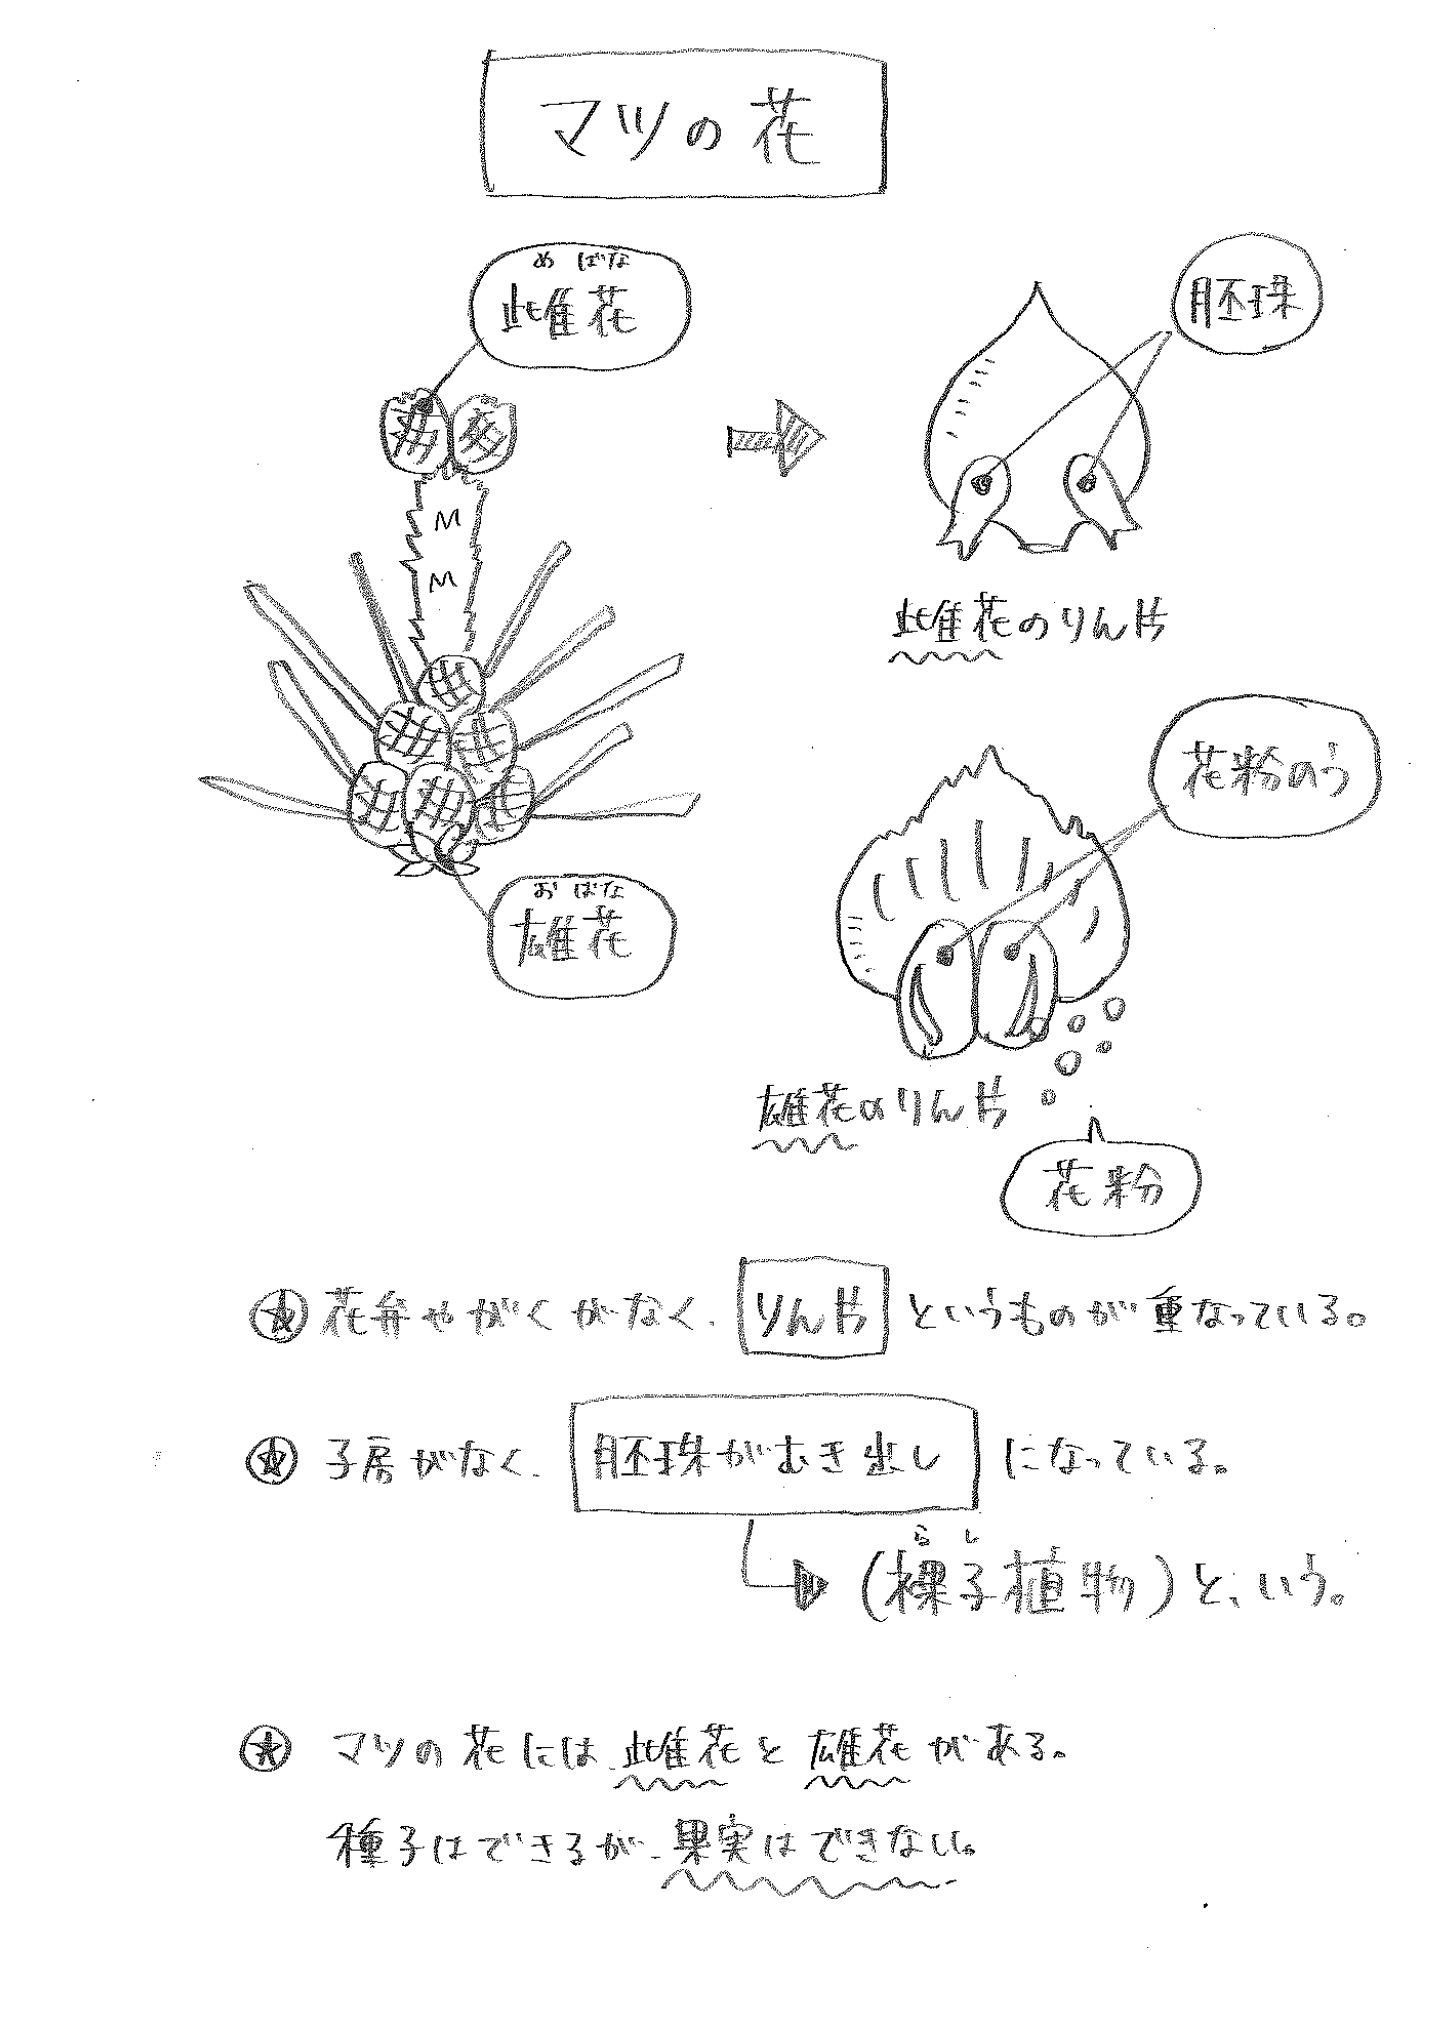 マツの花
めばな
雌花
胚珠
雌花のりん片
花粉のう
おばな
雄花
雄花のりん片
花粉
花弁やがくがなく、りん片というものが重なっている。
子房がなく、胚珠がむき出しになっている。
らし
(裸子植物)と、いう。
マツの花には、雌花と雄花がある。
種子はできるが、果実はできない。